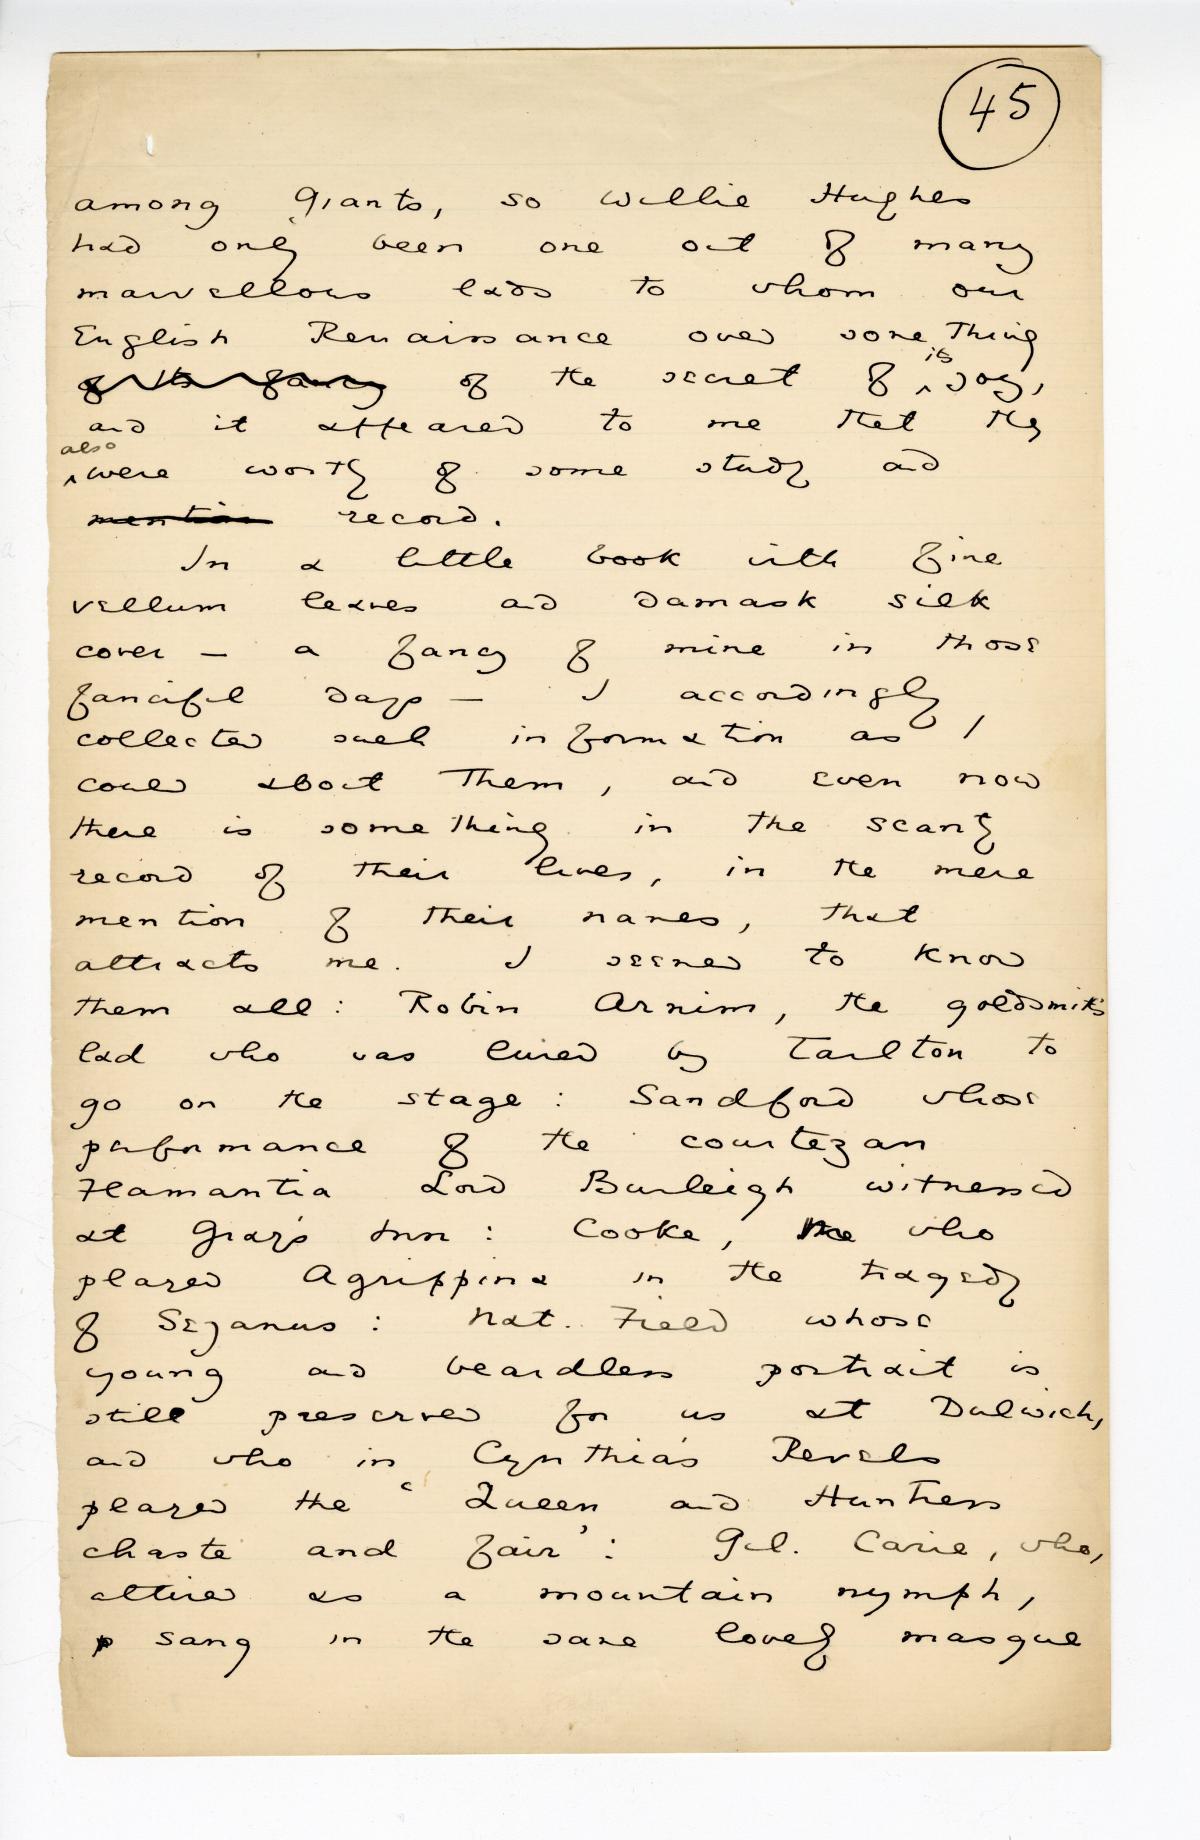 45
among giants, so Willie Hughes
had only been one out of many
marvellous lads to whom our
English Renaissance owed something
of its fancy of the secret of its joy,
and it appeared to me that they
also were worthy of some study and
mention record.
In a little book with fine
vellum leaves and damask silk
cover — a fancy of mine in those
fanciful days — I accordingly
collected such information as I
could about them, and even now
there is something in the scanty
record of their lives, in the mere
mention of their names, that
attracts me. I seemed to know
them all: Robin Armin, the goldsmith's
lad who was lured by Tarlton to
go on the stage: Sandford whose
performance of the courtezan
Flamantia Lord Burleigh witnessed
at Gray's Inn: Cooke, who
played Agrippina in the tragedy
of Sejanus: Nat. Field whose
young and beardless portrait is
still preserved for us at Dulwich,
and who in Cynthia's Revels
played the ‘Queen and Huntress
chaste and fair’: Gil. Carie, who,
attired as a mountain nymph,
sang in the same lovely masque